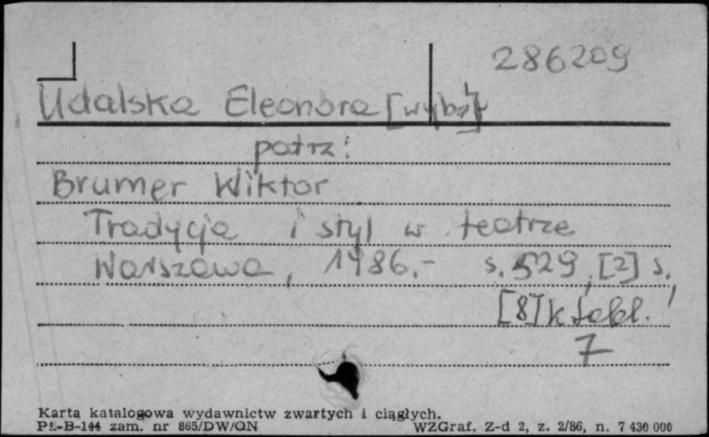 286209
Udalska Eleonora [wybór]
patrz:
Brumer Wiktor
Tradycja i styl w teatrze
Warszawa, 1986.- s. 529, [2] s.,
[8] k tabl.
7
Karta katalogowa wydawnictw zwartych i ciągłych.
Pł.-B-144 zam. nr 865/DW/ON WZGraf. Z-d 2, z. 2/86, n. 7 430 000